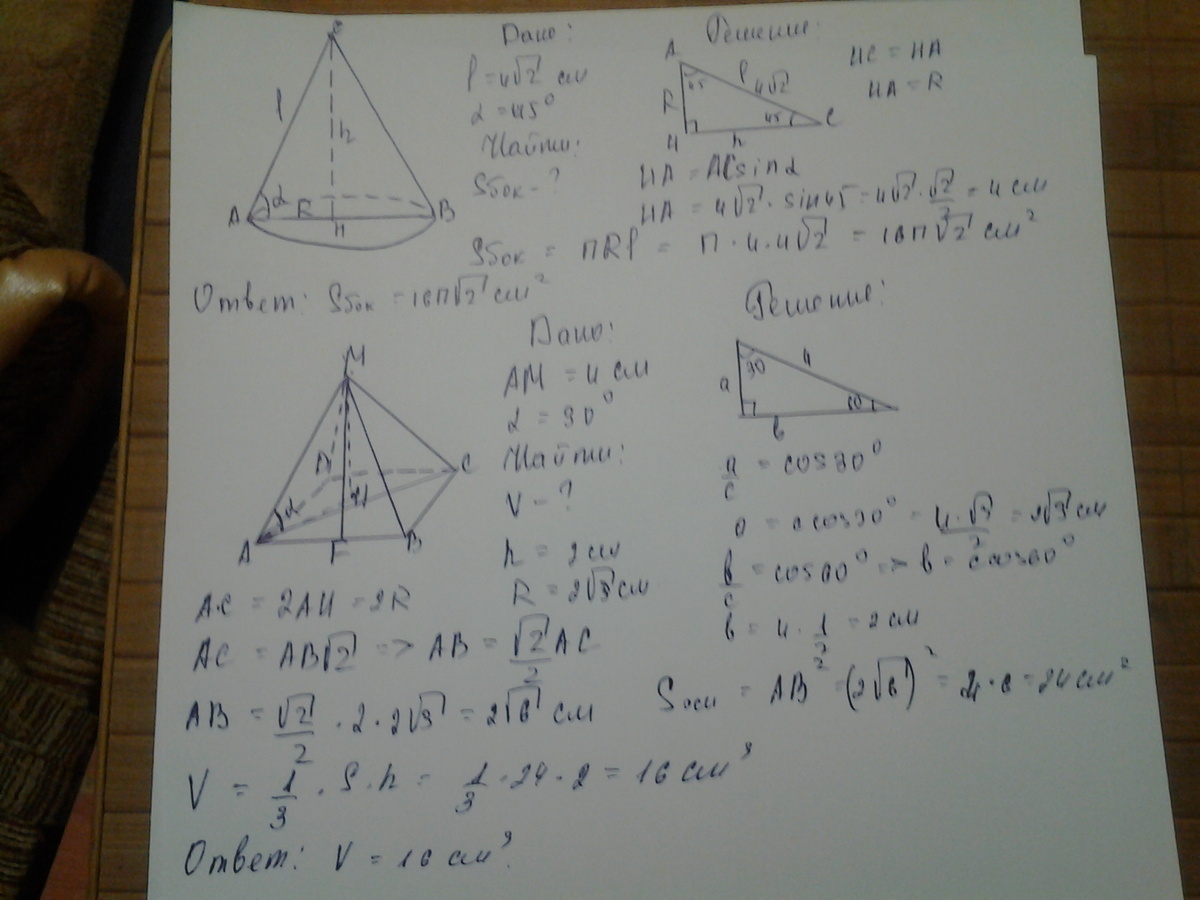 Дано:
l = 4√2 см
α = 45°
Найти:
Sбок - ?
C
l
h
A α R H B
Решение:
A
45
l
4√2
R
45
C
H
h
HC = HA
HA = R
HA = AC sin α
HA = 4√2 · sin 45 = 4√2 · √2/2 = 4 см
Sбок = ПRl = П · 4 · 4√2 = 16П√2 см²
Ответ: Sбок = 16П√2 см²
M
D
C
α
H
A
F
B
Дано:
AM = 4 см
α = 30°
Найти:
V - ?
h = 2 см
R = 2√3 см
Решение:
30
4
a
60
b
a/c = cos 30°
a = c cos 30° = 4·√3/2 = 2√3 см
b/c = cos 60° => b = c cos 60°
b = 4 · 1/2 = 2 см
AC = 2AH = 2R
AC = AB√2 => AB = √2/2 AC
AB = √2/2 · 2 · 2√3 = 2√6 см
Sосн = AB² = (2√6)² = 4·6 = 24 см²
V = 1/3 · S · h = 1/3 · 24 · 2 = 16 см³
Ответ: V = 16 см³.